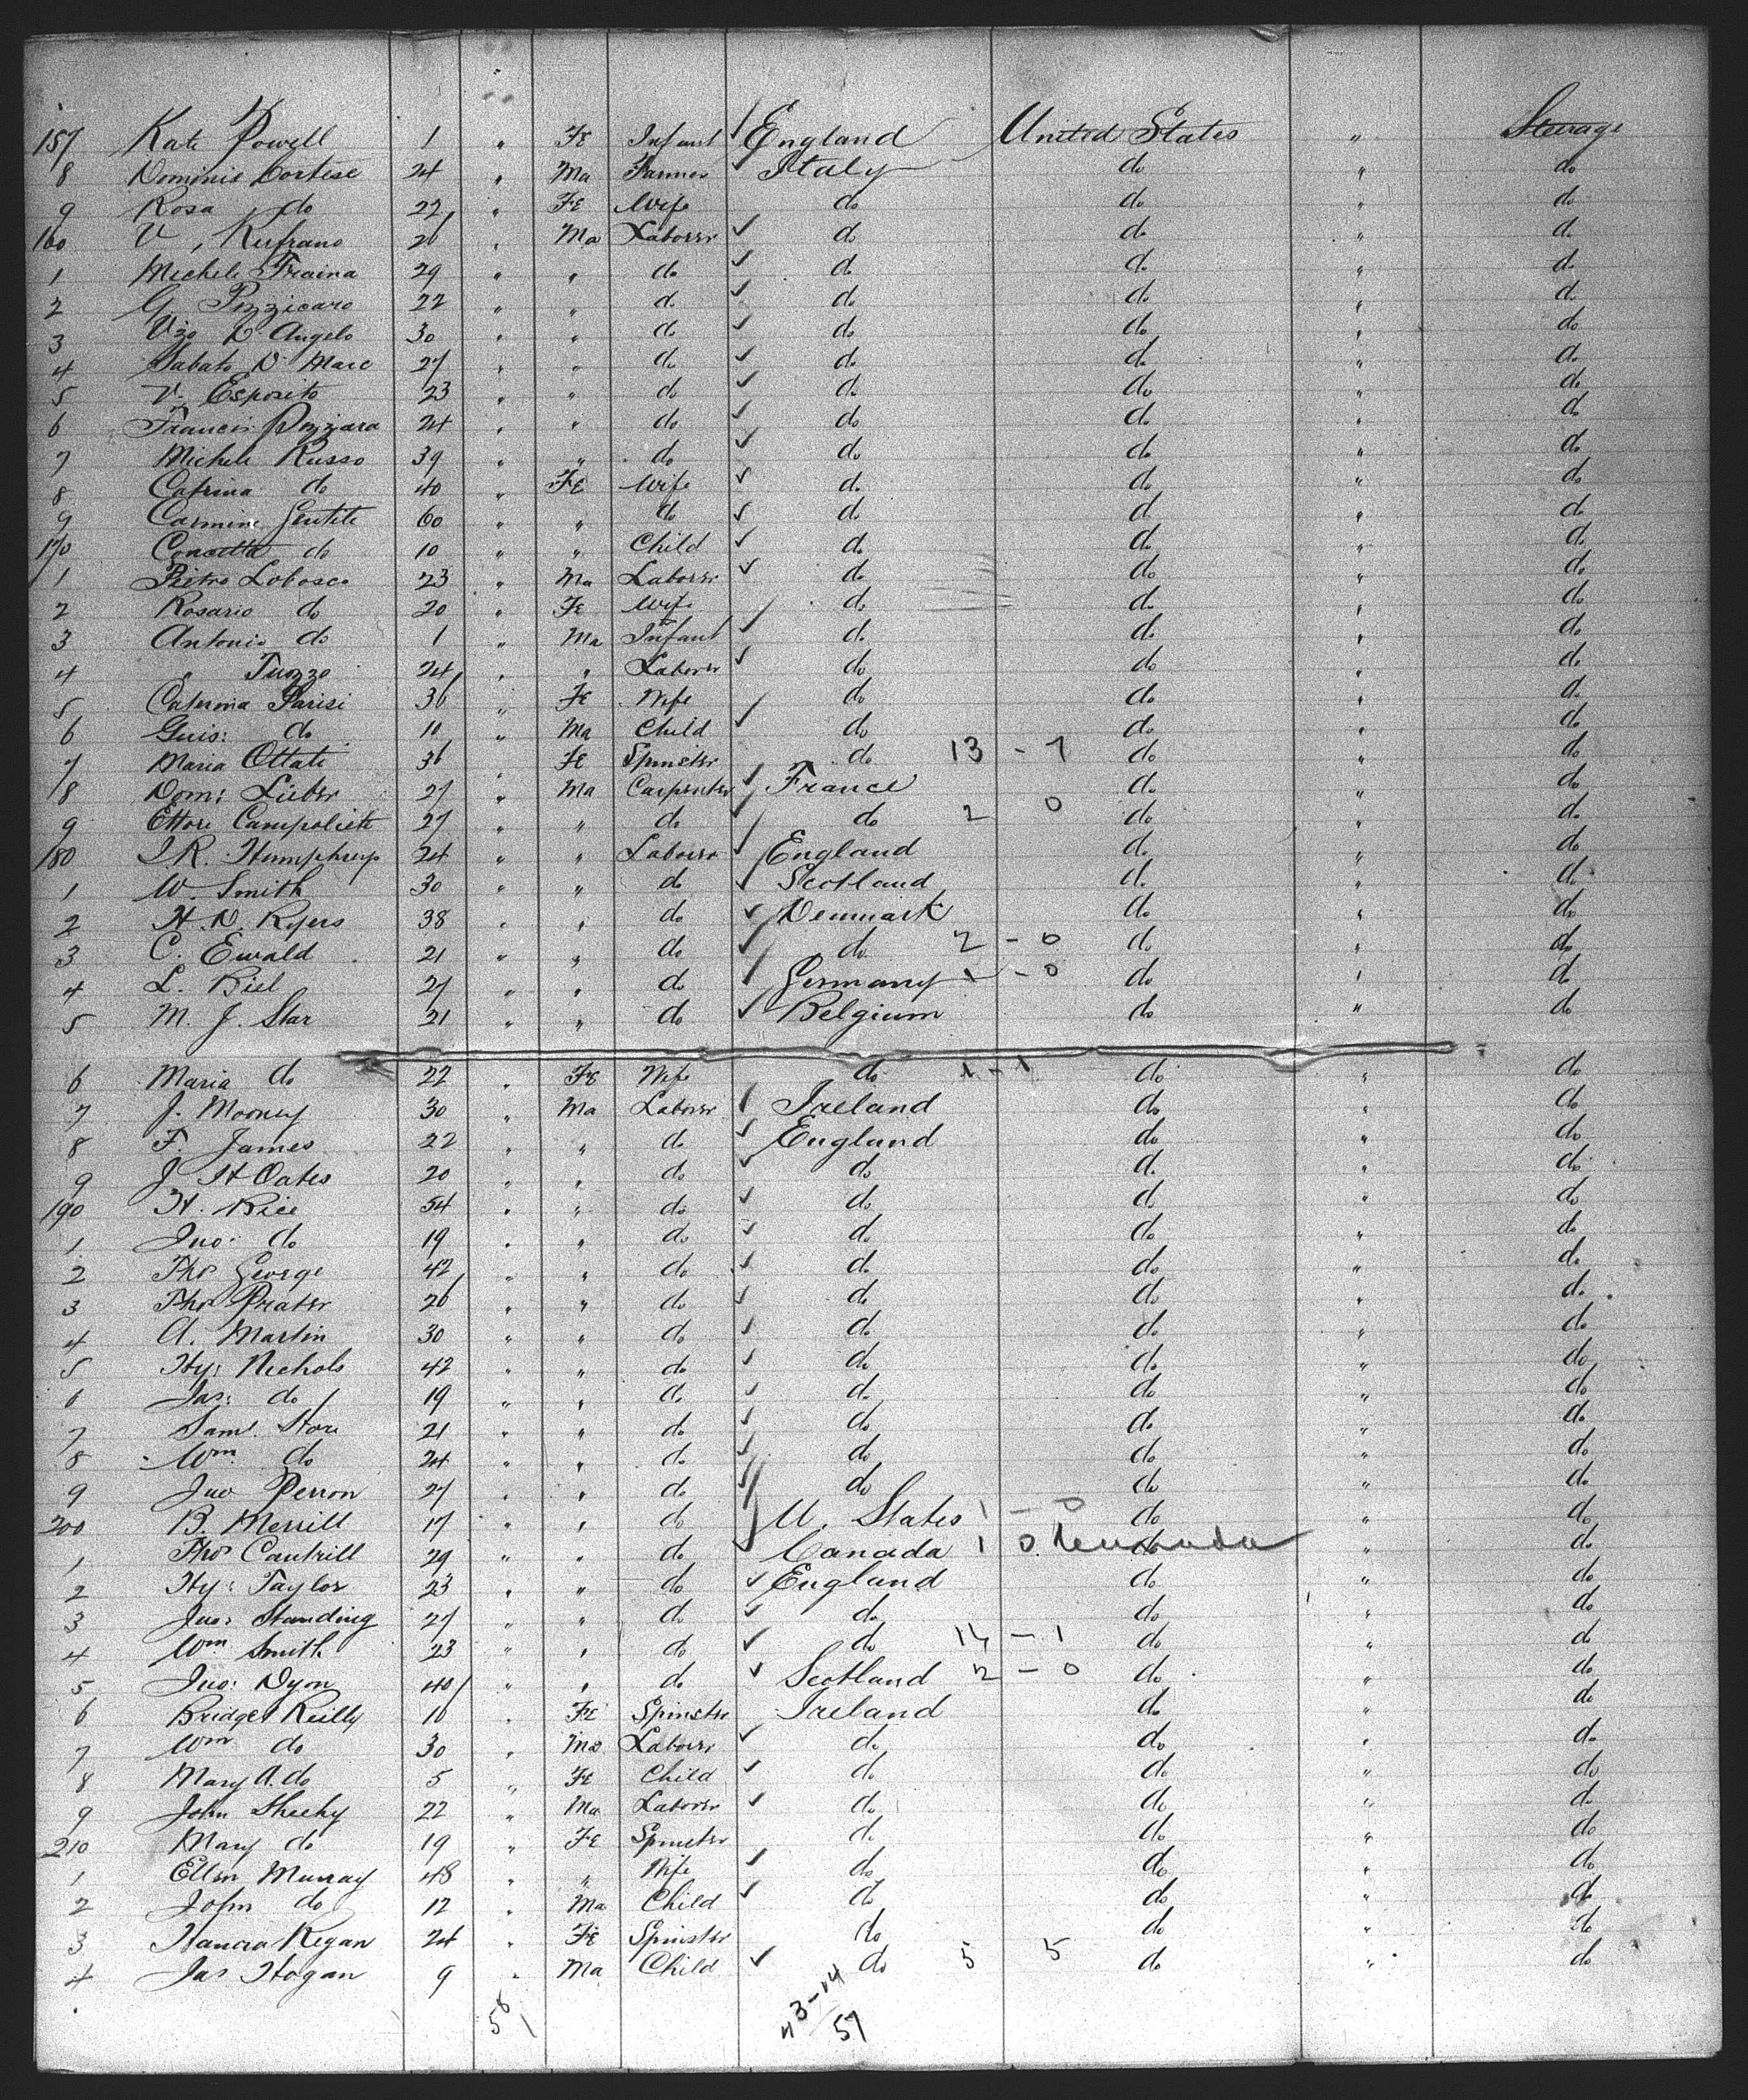 157 Kate Powell 1 " Fe Infant England United States " Steerage
8 Dominic Cortese 24 " Ma Farmer Italy do " do
9 Rosa do 22 " Fe Wife do do " do
160 V, Rufrano 26 " Ma Laborer do do " do
1 Michele Fraina 29 " " do do do " do
2 G Pozzicaro 22 " " do do do " do
3 Vzo D'Angelo 30 " " do do do " do
4 Sabato D' Marc 27 " " do do do " do
5 V. Esposito 23 " " do do do " do
6 Francis Pozzara 24 " " do do do " do
7 Michele Russo 39 " " do do do " do
8 Catrina do 40 " Fe Wife do do " do
9 Carmine Gentile 60 " " do do do " do
170 Concetta do 10 " " Child do do " do
1 Pietro Lobosco 23 " Ma Laborer do do " do
2 Rosario do 20 " Fe Wife do do " do
3 Antonio do 1 " Ma Infant do do " do
4 " Tuozzo 24 " " Laborer do do " do
5 Caterina Parisi 36 " Fe Wife do do " do
6 Guis: do 10 " Ma Child do do " do
7 Maria Ottati 36 " Fe Spinster do 13 - 7 do " do
8 Dom: Lieber 27 " Ma Carpenter France do " do
9 Ettore Campoliete 27 " " do do 2 0 do " do
180 J.R. Humphreys 24 " " Laborer England do " do
1 W. Smith 30 " " do Scotland do " do
2 H. D. Ryers 38 " " do Denmark do " do
3 C. Ewald 21 " " do do 2 - 0 do " do
4 L. Biel 27 " " do Germany 1 - 0 do " do
5 M. J. Star 21 " " do Belgium do " do
6 Maria do 22 " Fe Wife do 1 - 1 do " do
7 J. Mooney 30 " Ma Laborer Ireland do " do
8 F. James 22 " " do England do " do
9 J. H Oates 20 " " do do do " do
190 H. Rice 54 " " do do do " do
1 Jno: do 19 " " do do do " do
2 Thos George 42 " " do do do " do
3 Thos Prater 26 " " do do do " do
4 A. Martin 30 " " do do do " do
5 Hy: Nichols 42 " " do do do " do
6 Jas: do 19 " " do do do " do
7 Saml. Hore 21 " " do do do " do
8 Wm do 24 " " do do do " do
9 Jno Perron 27 " " do do do " do
200 B. Merrill 17 " " do U. States 1 - 0 do " do
1 Thos Cantrill 29 " " do Canada 1 0 do " do
2 Hy: Taylor 23 " " do England do " do
3 Jno: Standing 27 " " do do do " do
4 Wm Smith 23 " " do do 14 - 1 do " do
5 Jno: Dyon 40 " " do Scotland 2 - 0 do " do
6 Bridget Reilly 16 " Fe Spinster Ireland do " do
7 Wm do 30 " Ma Laborer do do " do
8 Mary A. do 5 " Fe Child do do " do
9 John Sheehy 22 " Ma Laborer do do " do
210 Mary do 19 " Fe Spinster do do " do
1 Ellen Murray 48 " " Wife do do " do
2 John do 12 " Ma Child do do " do
3 Regan 24 " Fe Spinster do do " do
4 Jas Hogan 9 " Ma Child do 5 5 do " do
58 43-14
57